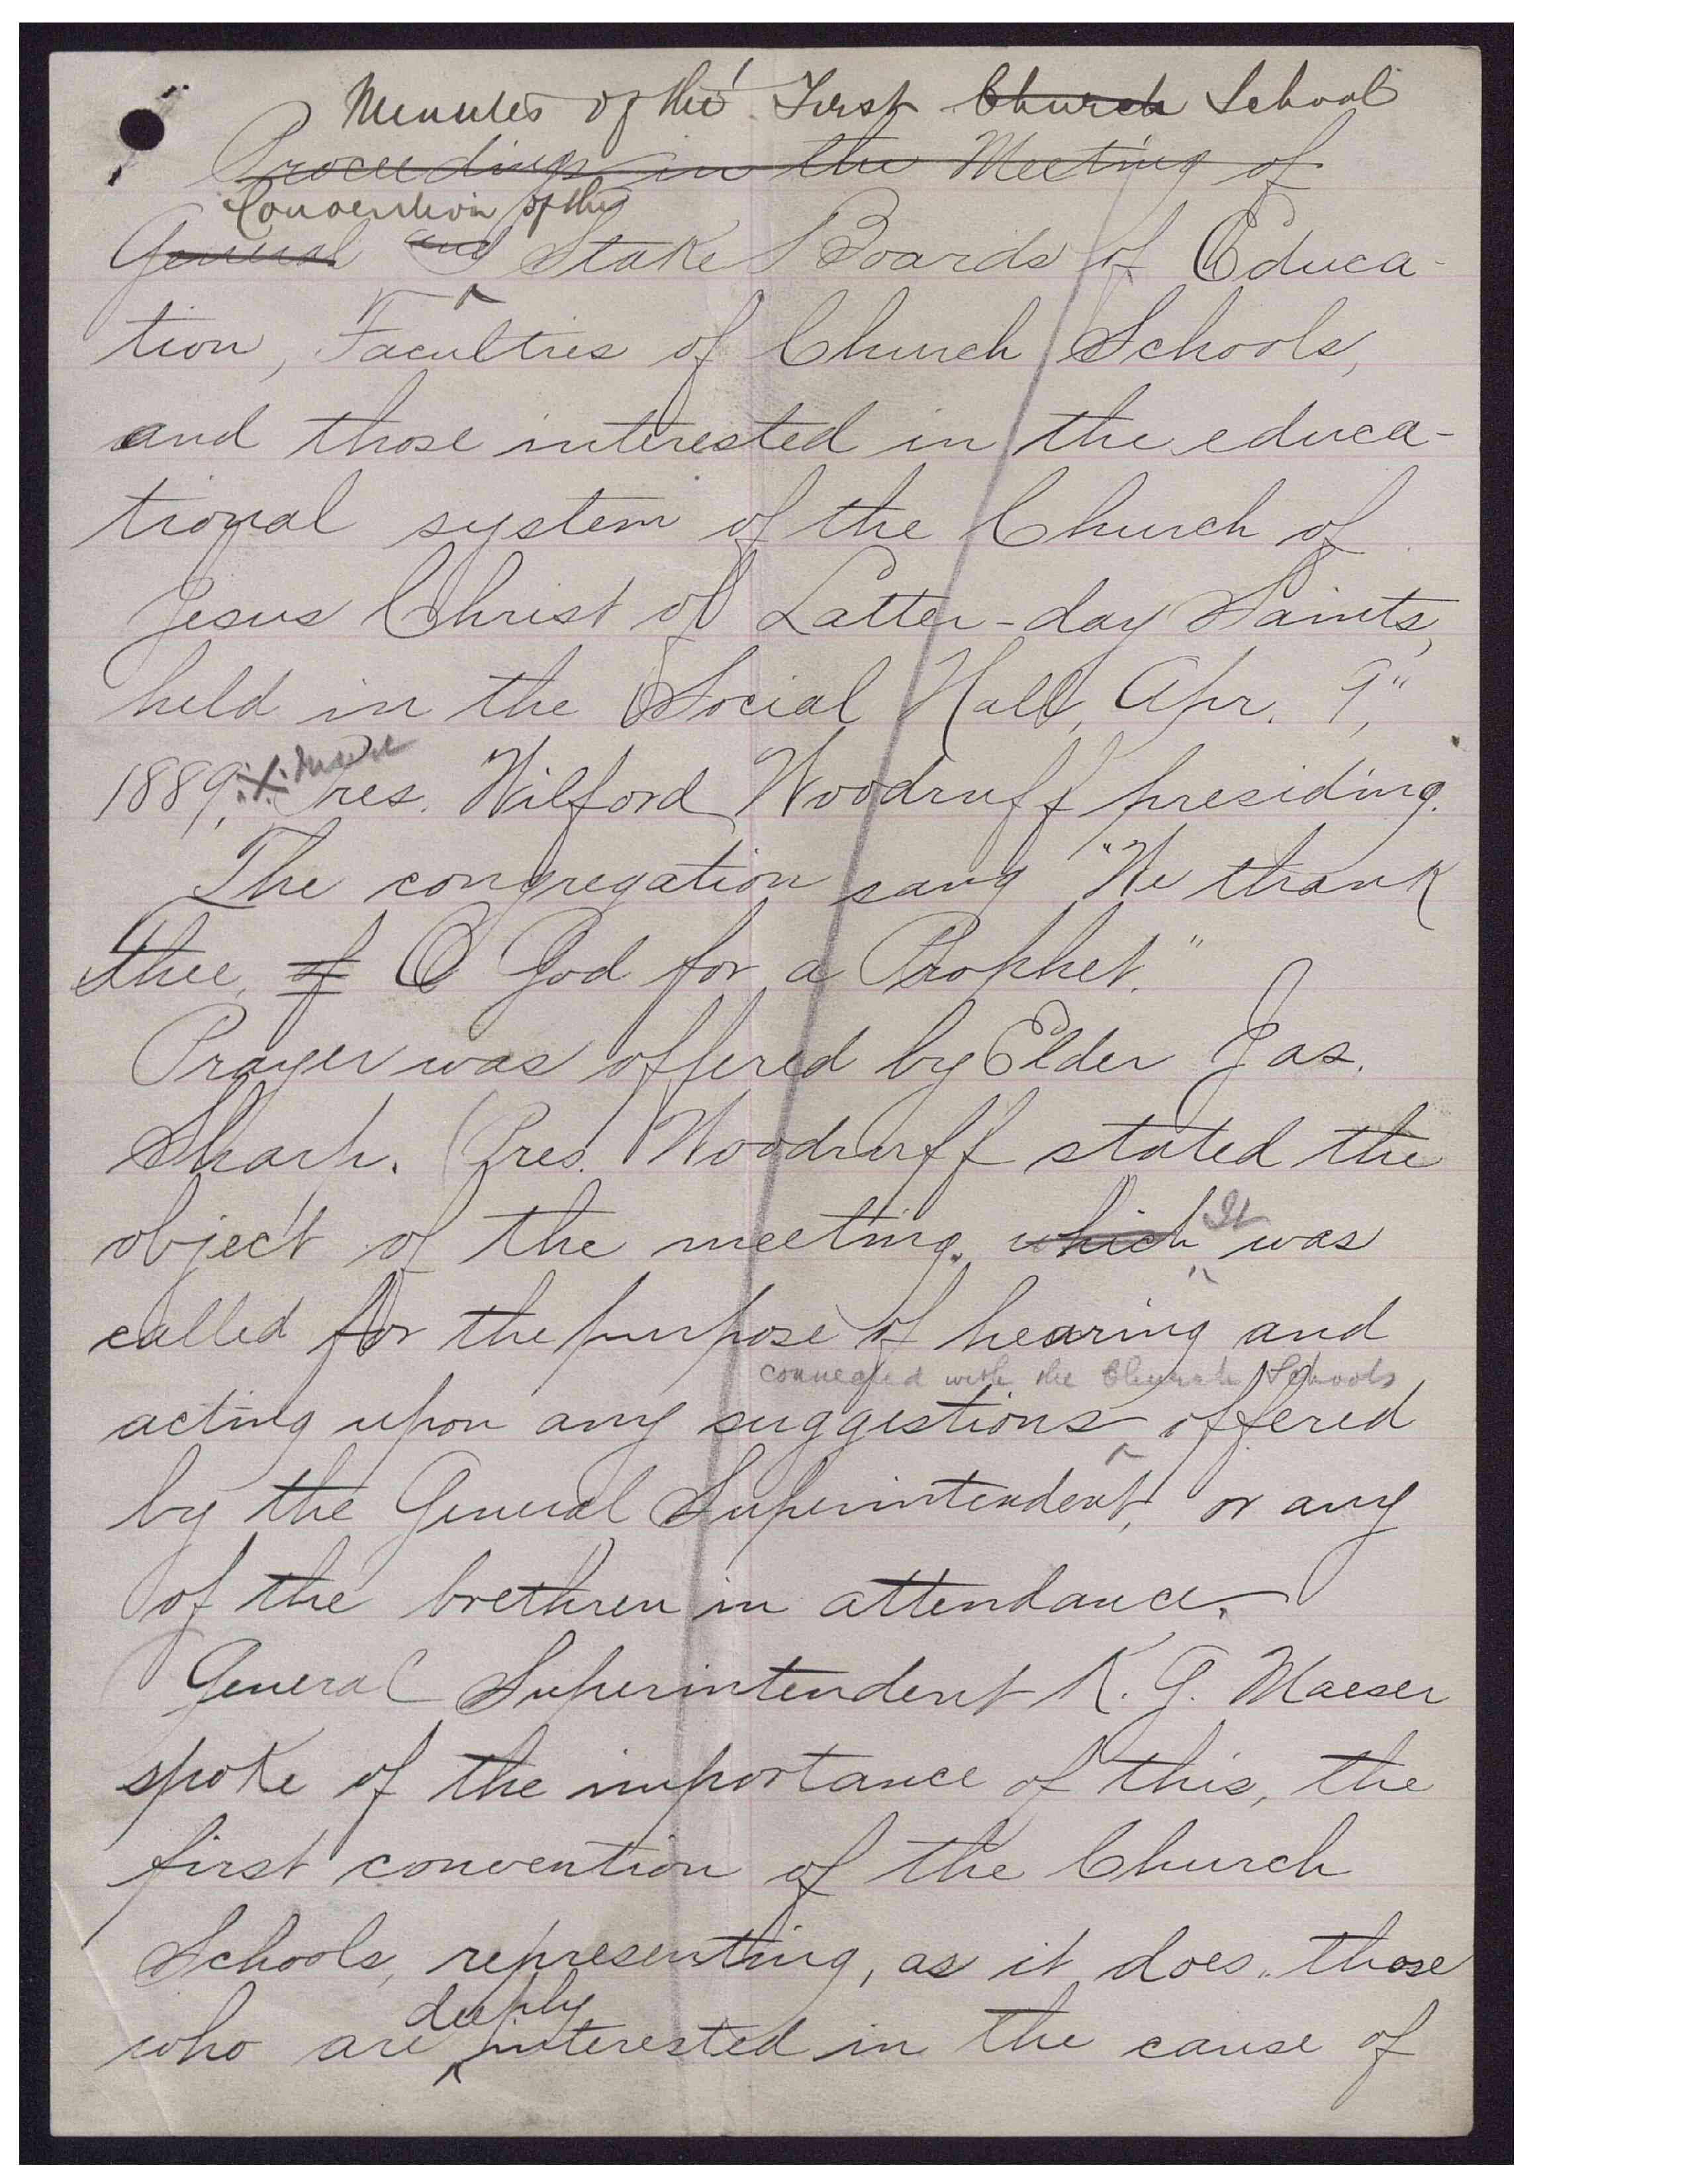 Minutes of the First Church School
Proceedings in the Meeting of
Convention of the
General and Stake Boards of Educa-
tion, Faculties of Church Schools,
and those interested in the educa-
tional system of the Church of
Jesus Christ of Latter-day Saints,
held in the Social Hall, Apr. 9",
1889, Pres. Wilford Woodruff presiding.
The congregation sang "We thank
Thee, of O God for a Prophet."
Prayer was offered by Elder Jas.
Sharp. (Pres. Woodruff stated the
It
object of the meeting. which was
called for the purpose of hearing and
connected with the Church Schools
acting upon any suggestions offered
by the General Superintendent, or any
of the brethren in attendance.
General Superintendent K. G. Maeser
spoke of the importance of this, the
first convention of the Church
Schools, representing, as it does, those
deeply
who are interested in the cause of